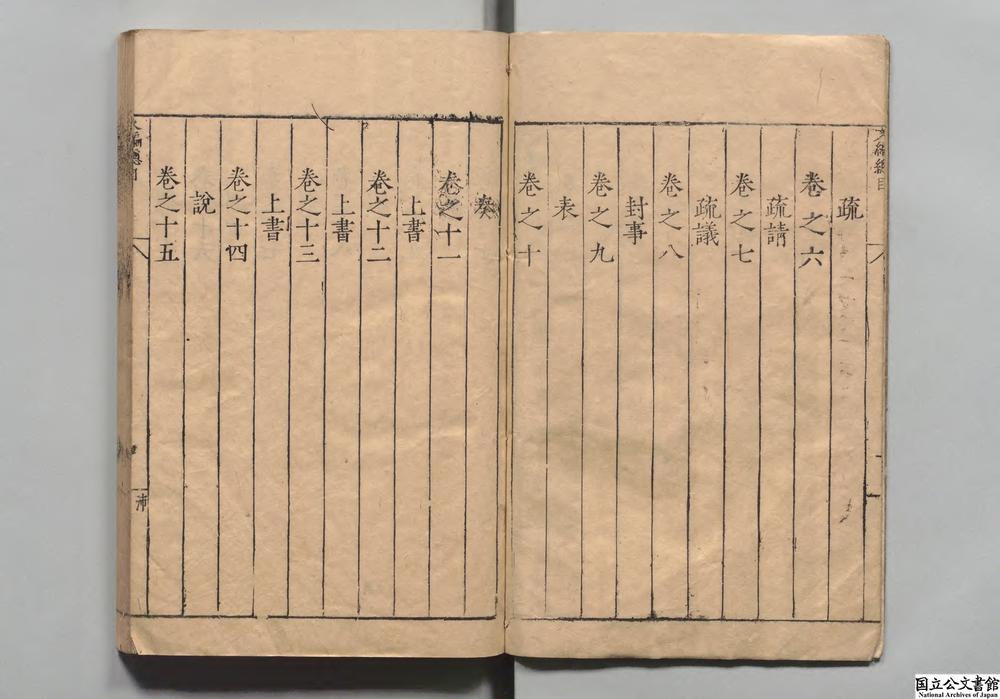 文編總目
疏
卷之六
疏請
卷之七
疏議
卷之八
封事
卷之九
表
卷之十
奏
卷之十一
上書
卷之十二
上書
卷之十三
上書
卷之十四
說
卷之十五
文編總目
国立公文書館
National Archives of Japan